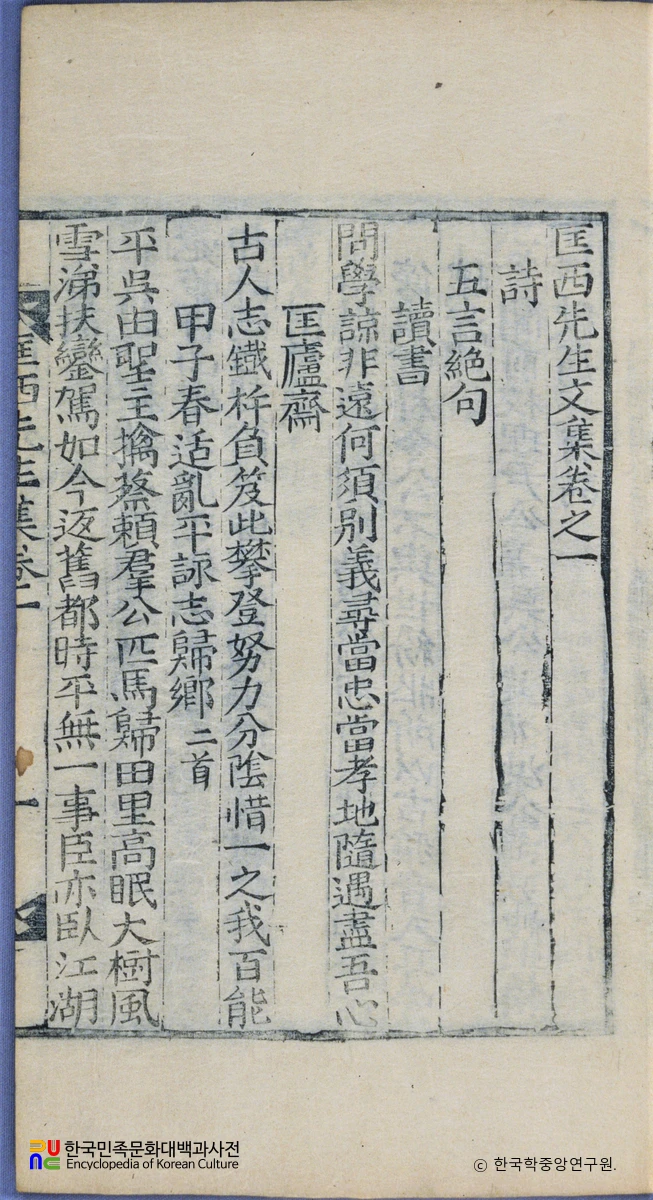 匡西先生文集卷之一
詩
五言絕句
讀書
問學諒非遠何須別義尋當忠當孝地隨遇盡吾心
匡廬齋
古人志鐵杵負笈此攀登努力分陰惜一之我百能
甲子春适亂平詠志歸鄉 二首
平吳由聖主擒蔡賴羣公匹馬歸田里高眠大樹風
雪涕扶鑾駕如今返舊都時平無一事臣亦臥江湖
匡西先生集卷一
一
한국민족문화대백과사전
Encyclopedia of Korean Culture
© 한국학중앙연구원.